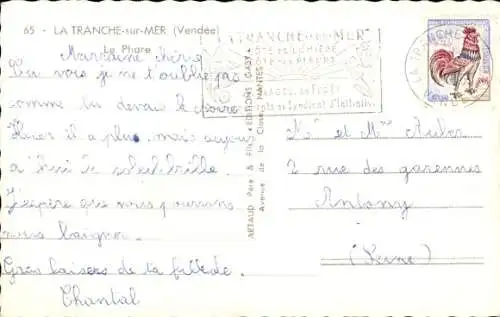 65 - LA TRANCHE-sur-MER (Vendée)
Le Phare
Marraine chérie
Tu vois je ne t'oublie pas
comme tu devais le croire
Hier il a plu, mais aujour
d'hui le soleil brille.
J'espère que nous pourrons
nous baigner.
Gros baisers de ta filleule.
Chantal
ARTAUD Père & Fils, « EDITIONS GABY »
Avenue de la Close - NANTES
LA TRANCHE-sur-MER
CÔTE DE LUMIÈRE
Syndicat d'Initiative
LA TRANCHE
Mr et Mme Auber
2 rue des garennes
Antony
(Seine)